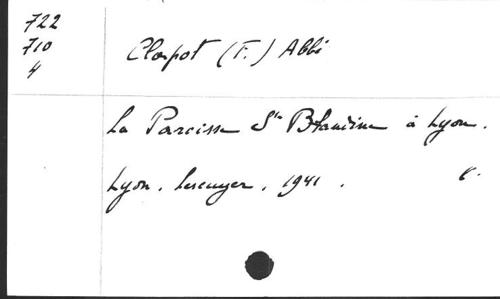 722
710
4
Claspot (F.) Abbé
La Paroisse Ste Blandine à Lyon.
Lyon. Lescuyer. 1941.